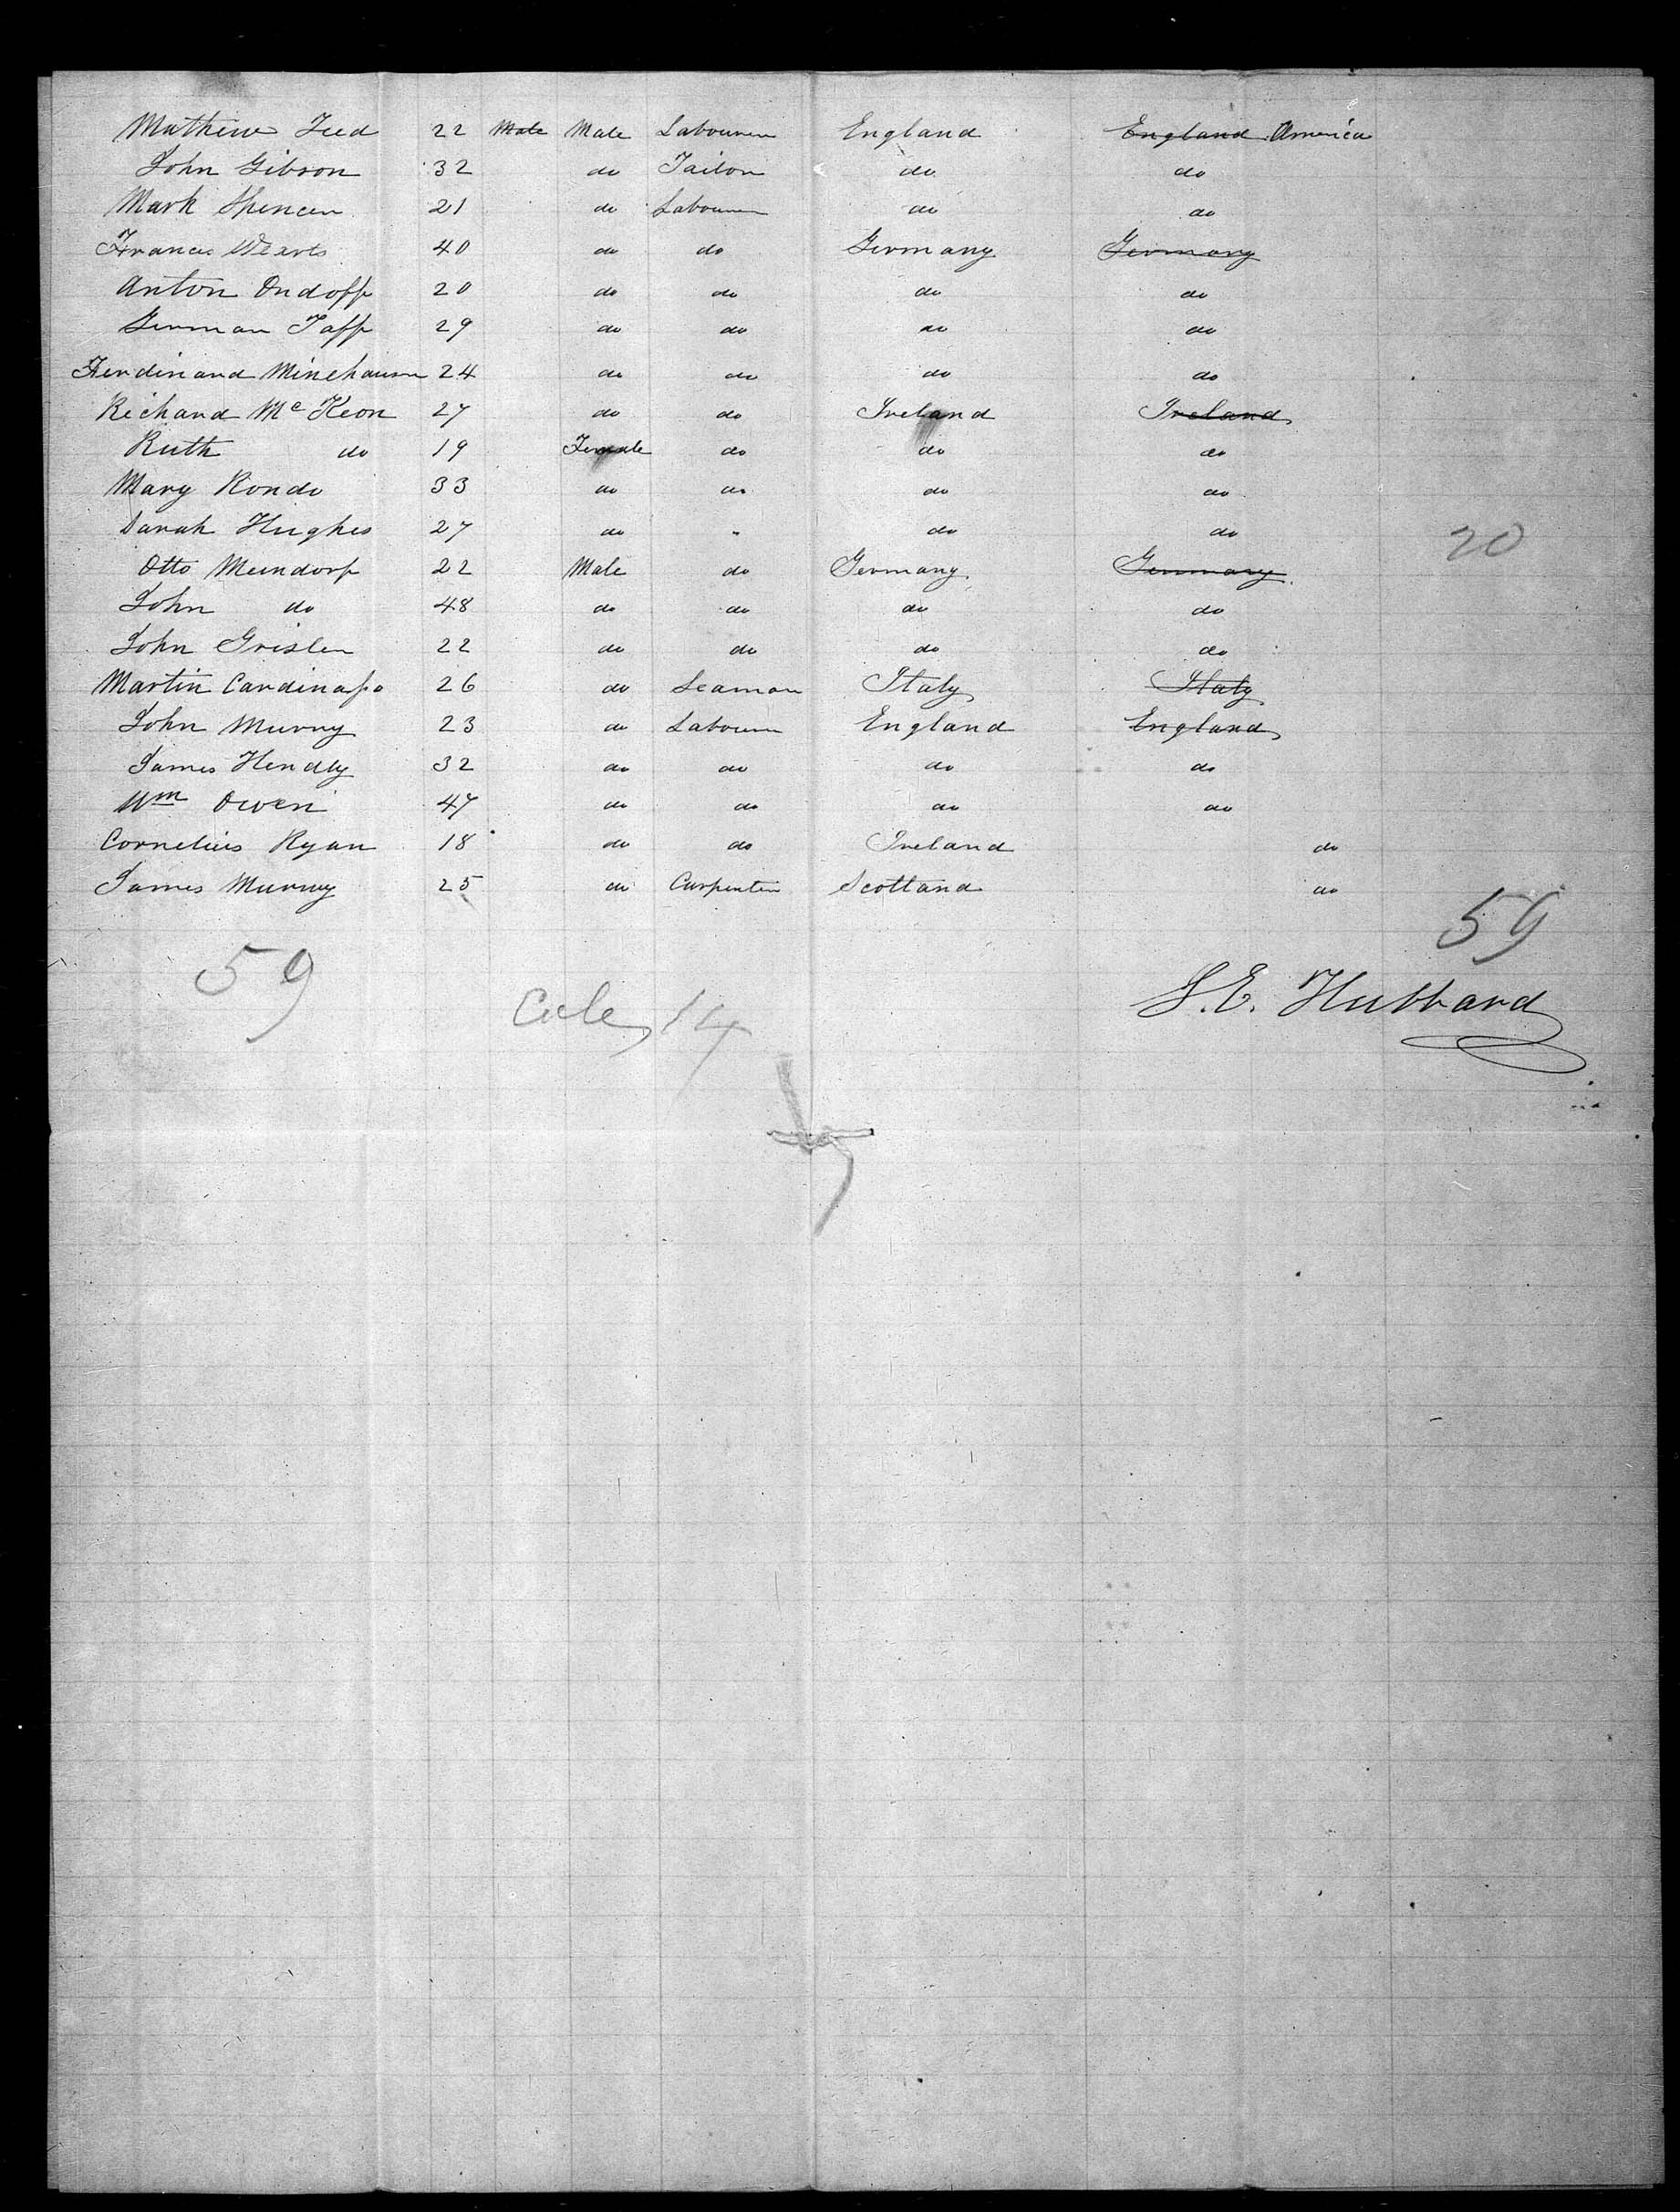 Mathew Teed 22 Male Male Labourer England England America
John Gibson 32 do Tailor do do
Mark Spencer 21 do Labourer do do
Frances Wexrts 40 do do Germany Germany
Anton Ondoff 20 do do do do
German Taff 29 do do do do
Ferdinand Minehausen 24 do do do do
Richard Mc Keon 27 do do Ireland Ireland
Ruth do 19 Female do do do
Mary Rondo 33 do do do do
Sarah Hughes 27 do " do do
20
Otto Meindorf 22 Male do Germany Germany
John do 48 do do do do
John Grisler 22 do do do do
Martin Cardinapo 26 do Seaman Italy Italy
John Murry 23 do Labourer England England
James Hendly 32 do do do do
Wm Owen 47 do do do do
Cornelius Ryan 18 do do Ireland do
James Murray 25 do Carpenter Scotland do
59
59
14
S. E. Hubbard